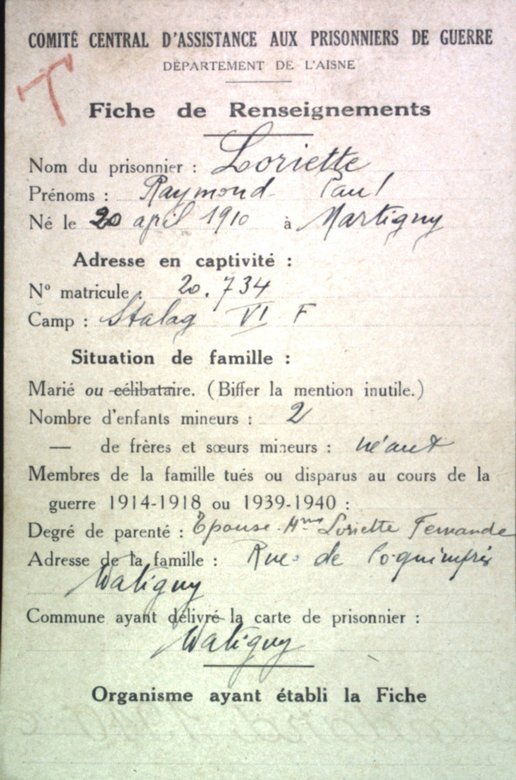 COMITÉ CENTRAL D'ASSISTANCE AUX PRISONNIERS DE GUERRE
DÉPARTEMENT DE L'AISNE
T
Fiche de Renseignements
Nom du prisonnier : Loriette
Prénoms : Raymond Paul
Né le 20 april 1910 à Martigny
Adresse en captivité :
N° matricule : 20.734
Camp : Stalag VI F
Situation de famille :
Marié ou célibataire. (Biffer la mention inutile.)
Nombre d'enfants mineurs : 2
— de frères et sœurs mineurs : néant
Membres de la famille tués ou disparus au cours de la
guerre 1914-1918 ou 1939-1940 :
Degré de parenté : Epouse Mme Loriette Fernande
Adresse de la famille : Rue de
Watigny
Commune ayant délivré la carte de prisonnier :
Watigny
Organisme ayant établi la Fiche